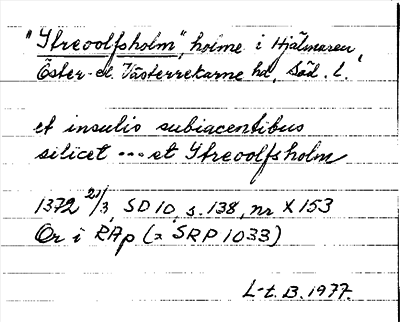 "Ytreoolfsholm", holme i Hjälmaren,
Öster- el. Västerrekarne hd, Söd. l.
et insulis subiacentibus
silicet --- et Ytreoolfsholm
1372 21/3, SD 10, s. 138, nr X 153
Or i RAp (= SRP 1033)
L-t. B. 1977.